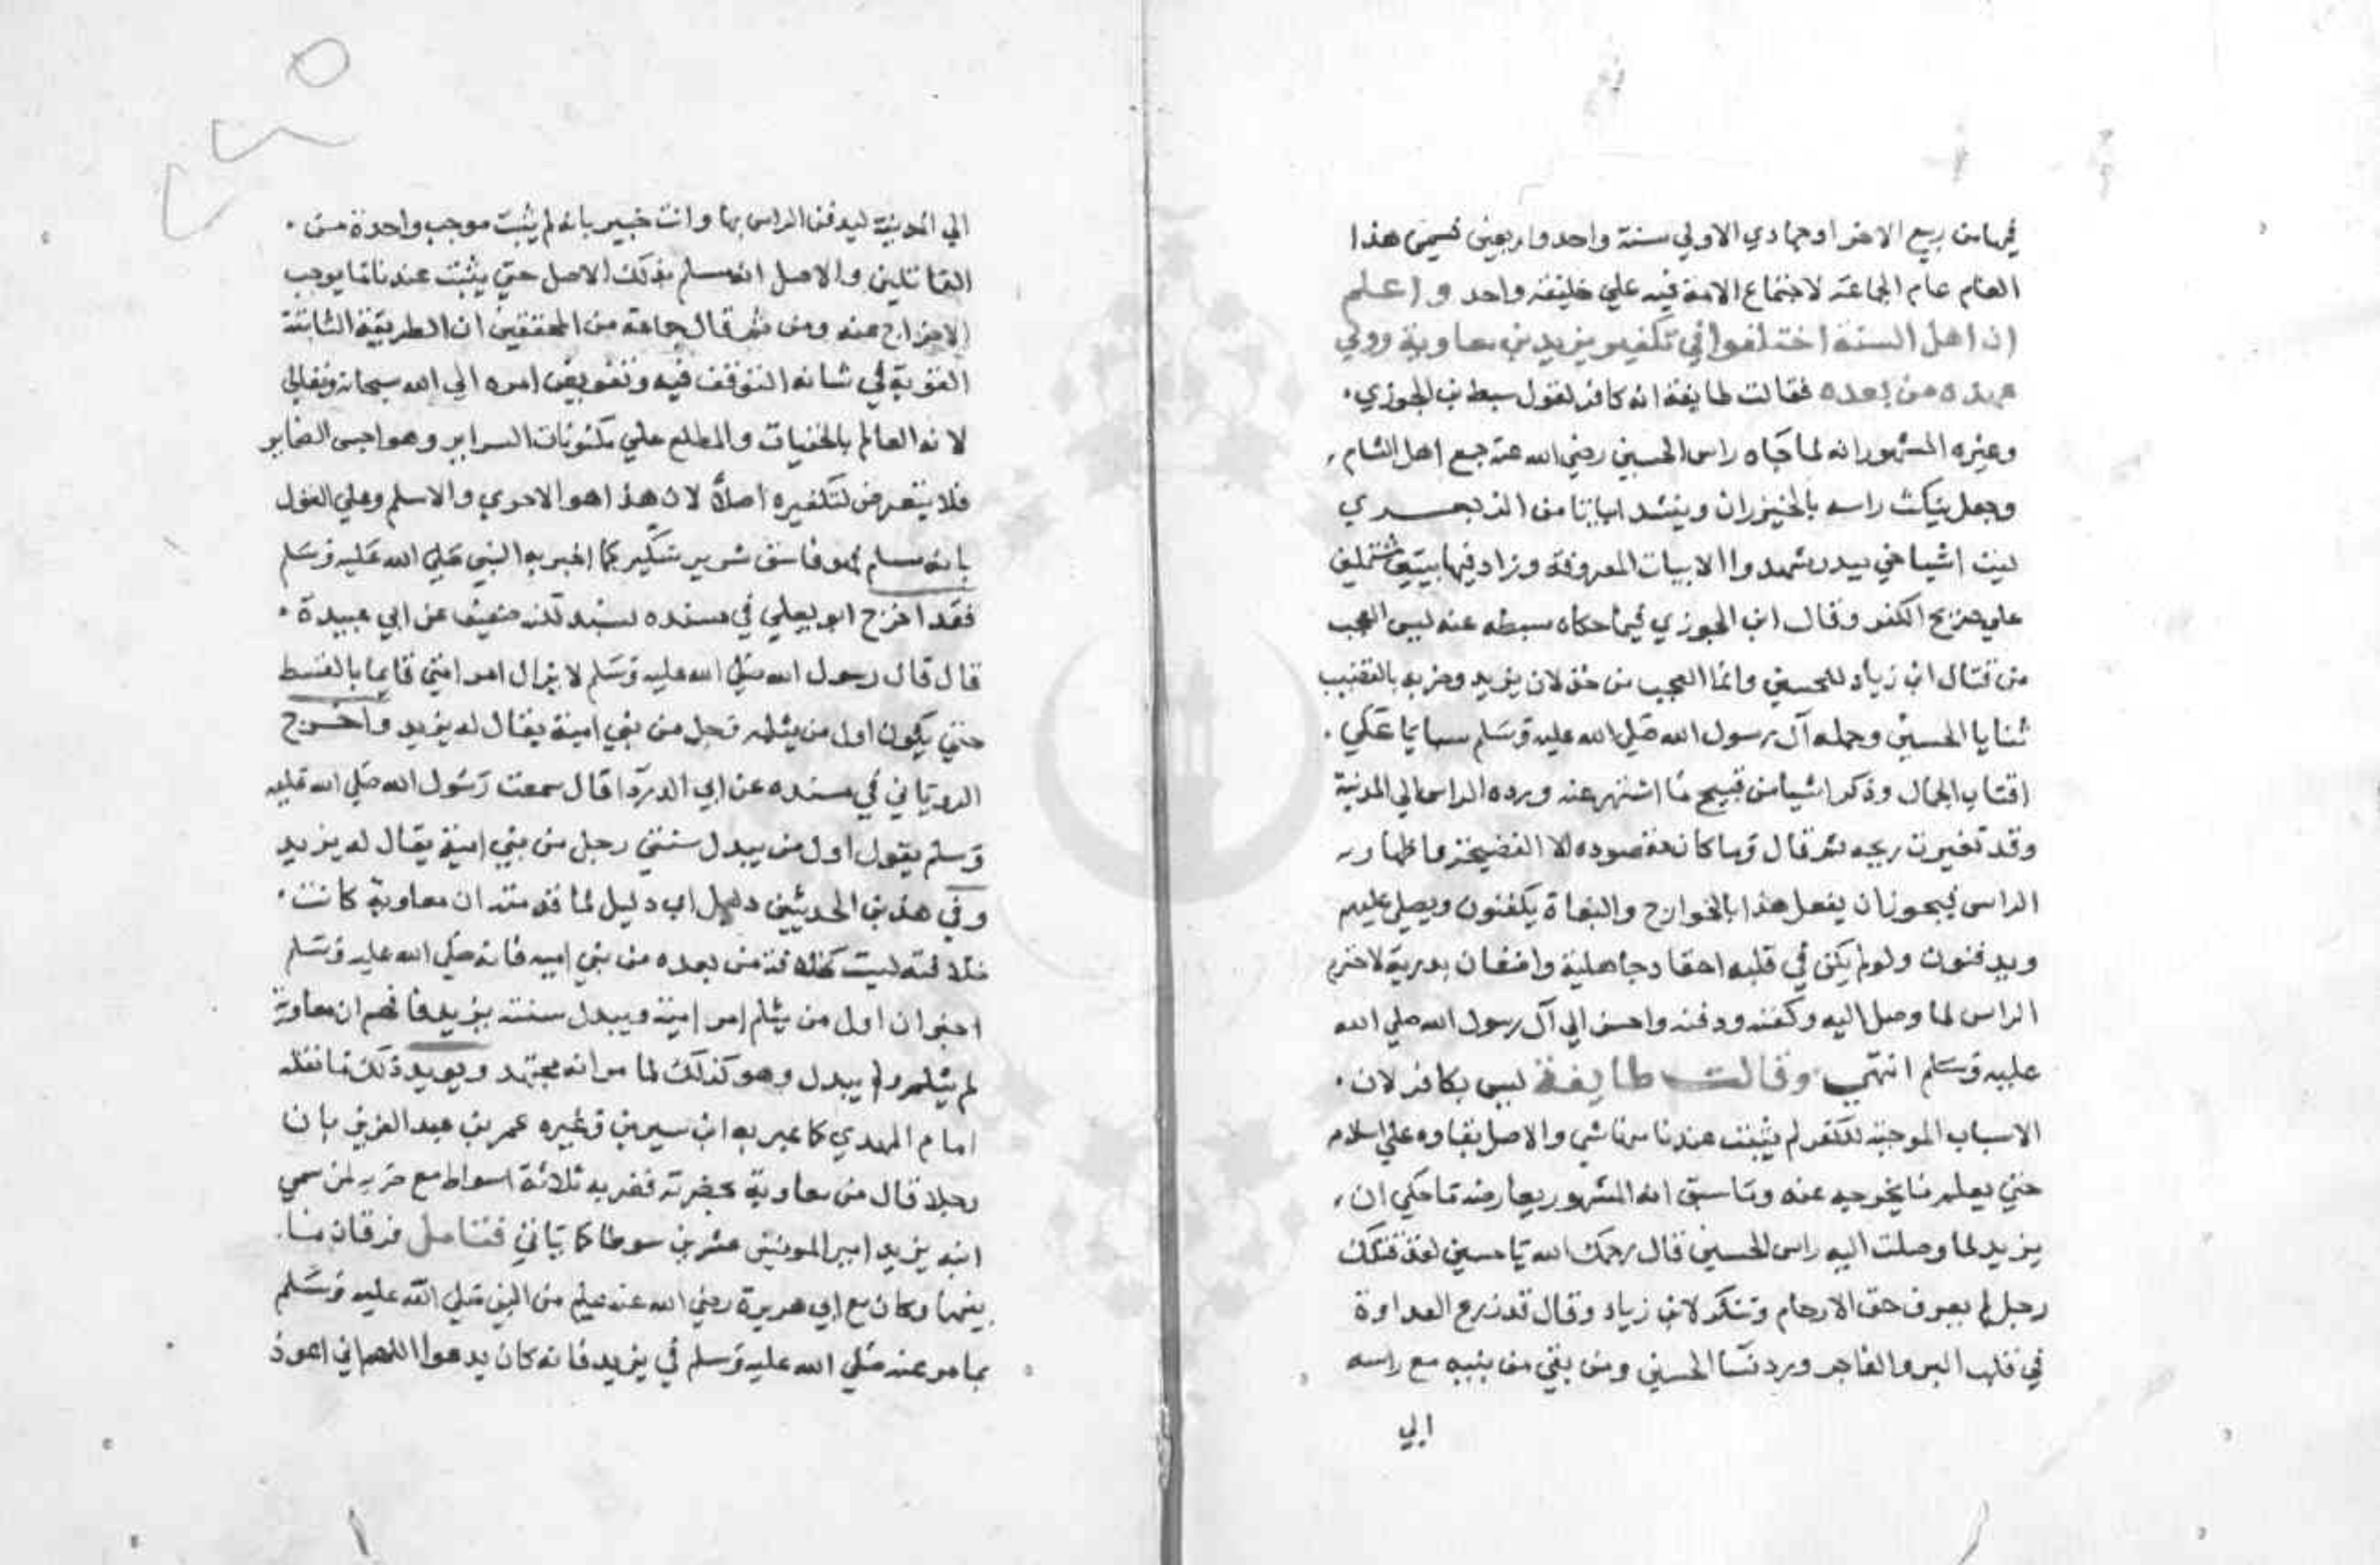 فيهما من ربيع الاخر او جمادي الاولي سنة واحد واربعين فسمي هذا
العام عام الجماعة لاجتماع الامة فيه علي خليفة واحد واعلم
ان اهل السنة اختلفوا في تكفير يزيد بن معاوية وولي
عهده من بعده فقالت طايفة انه كافر لقول سبط بن الجوزي
وغيره المشهور انه لما جاه راس الحسين رضي الله عنه جمع اهل الشام
وجعل ينكث راسه بالخيزران وينشد ابياتا من الزبعري
ليت اشياخي ببدر شهدوا الابيات المعروفة وزاد فيها بيتين مشتملين
علي صريح الكفر وقال ابن الجوزي فيما حكاه سبطه عنه ليس العجب
من قتال ابن زياد للحسين وانما العجب من خذلان يزيد وضربه بالقضيب
ثنايا الحسين وحمله آل رسول الله صلي الله عليه وسلم سبايا علي
اقتاب الجمال وذكر اشيا من قبيح ما اشتهر عنه ورده الراس الي المدينة
وقد تغيرت ريحه ثم قال وما كان مقصوده الا الفضيحة
الراس فيجوز ان يفعل هذا بالخوارج والبغاة يكفنون ويصلي عليهم
ويدفنون ولو لم يكن في قلبه احقاد جاهلية واضغان بدرية لاحترم
الراس لما وصل اليه وكفنه ودفنه واحسن الي آل رسول الله صلي الله
عليه وسلم انتهي وقالت طايفة ليس بكافر لان
الاسباب الموجبة للكفر لم يثبت عندنا منها شي والاصل بقاوه علي اسلامه
حتي يعلم ما يخرجه عنه وما سبق انه المشهور يعارضه ما حكي ان
يزيد لما وصلت اليه راس الحسين قال رحمك الله يا حسين لقد قتلك
رجل لم يعرف حق الارحام وتنكر لابن زياد وقال قد زرع العداوة
في قلب البر والفاجر ورد نسا الحسين ومن بقي من بنيه مع راسه
الي
الي المدينة ليدفن الراس بها وانت خبير بانه لم يثبت موجب واحدة من
القاتلين والاصل انه مسلم بذلك الاصل حتي يثبت عندنا ما يوجب
الاخراج عنه ومن ثم قال جماعة من المحققين ان الطريقة الثابتة
القوية في شانه التوقف فيه وتفويض امره الي الله سبحانه وتعالي
لانه العالم بالخفيات والمطلع علي مكنونات السراير وهواجس الضماير
فلا يتعرض لتكفيره اصلا لان هذا هو الاحري والاسلم وعلي القول
بانه مسلم فهو فاسق شرير سكير كما اخبر به النبي صلي الله عليه وسلم
فقد اخرج ابو يعلي في مسنده بسند لكنه ضعيف عن ابي عبيدة
قال قال رسول الله صلي الله عليه وسلم لا يزال امر امتي قايما بالقسط
حتي يكون اول من يثلمه رجل من بني امية يقال له يزيد واخرج
الروياني في مسنده عن ابي الدردا قال سمعت رسول الله صلي الله عليه
وسلم يقول اول من يبدل سنتي رجل من بني امية يقال له يزيد
وفي هذين الحديثين دليل اي دليل لما قدمته ان معاوية كانت
خلافته ليست كخلافة من بعده من بني اميه فانه صلي الله عليه وسلم
اخبر ان اول من يثلم امر امته ويبدل سنته يزيد فافهم ان معاوية
لم يثلم ولم يبدل وهو كذلك لما مر انه مجتهد ويويد ذلك ما نقله
امام المهدي كما عبر به ابن سيرين وغيره عمر بن عبد العزيز بان
رجلا قال من معاوية بحضرته فضربه ثلاثة اسواط مع ضربه لمن سمي
ابنه يزيد امير المومنين عشرين سوطا كما ياتي فتامل فرقان ما
بينهما وكان مع ابي هريرة رضي الله عنه علم من النبي صلي الله عليه وسلم
بما مر عنه صلي الله عليه وسلم في يزيد فانه كان يدعوا اللهم اني اعوذ